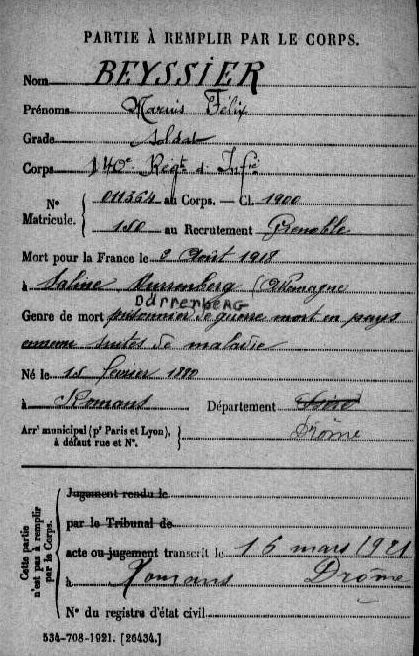 PARTIE À REMPLIR PAR LE CORPS.
Nom BEYSSIER
Prénoms Marius Félix
Grade soldat
Corps 140e Régt d'Infie
Nos Matricule. 011364 au Corps. — Cl. 1900
150 au Recrutement Grenoble
Mort pour la France le 2 Août 1918
à Saline (Allemagne
DÜRRENBERG
Genre de mort prisonnier de guerre mort en pays
ennemi suites de maladie
Né le 15 février 1880
à Romans Département Isère
Drôme
Arrt municipal (pr Paris et Lyon), à défaut rue et No.
Cette partie n'est pas à remplir par le Corps.
Jugement rendu le
par le Tribunal de
acte ou jugement transcrit le 16 mars 1921
à Romans Drôme
No du registre d'état civil
534-708-1921. [26434.]